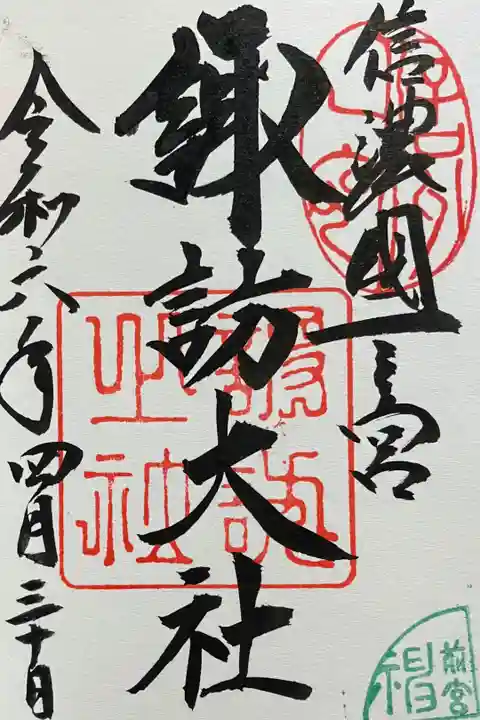 信濃國一之宮
諏訪大社
令和六年四月三十日
諏訪
前宮